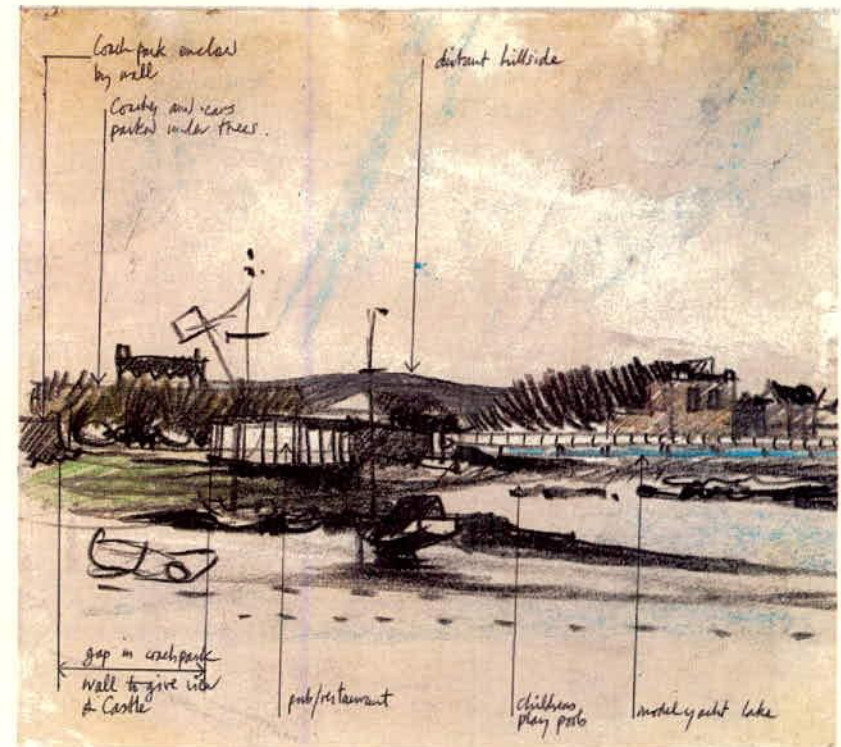 Coach park enclosed
by wall
Coaches and cars
parked under trees.
distant hillside
gap in coachpark
wall to give view
of Castle
pub/restaurant
childrens
play pools
model yacht lake